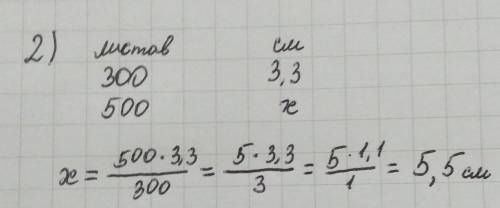 2) листов см
300 3,3
500 x
x = \frac{500 · 3,3}{300} = \frac{5 · 3,3}{3} = \frac{5 · 1,1}{1} = 5,5 см